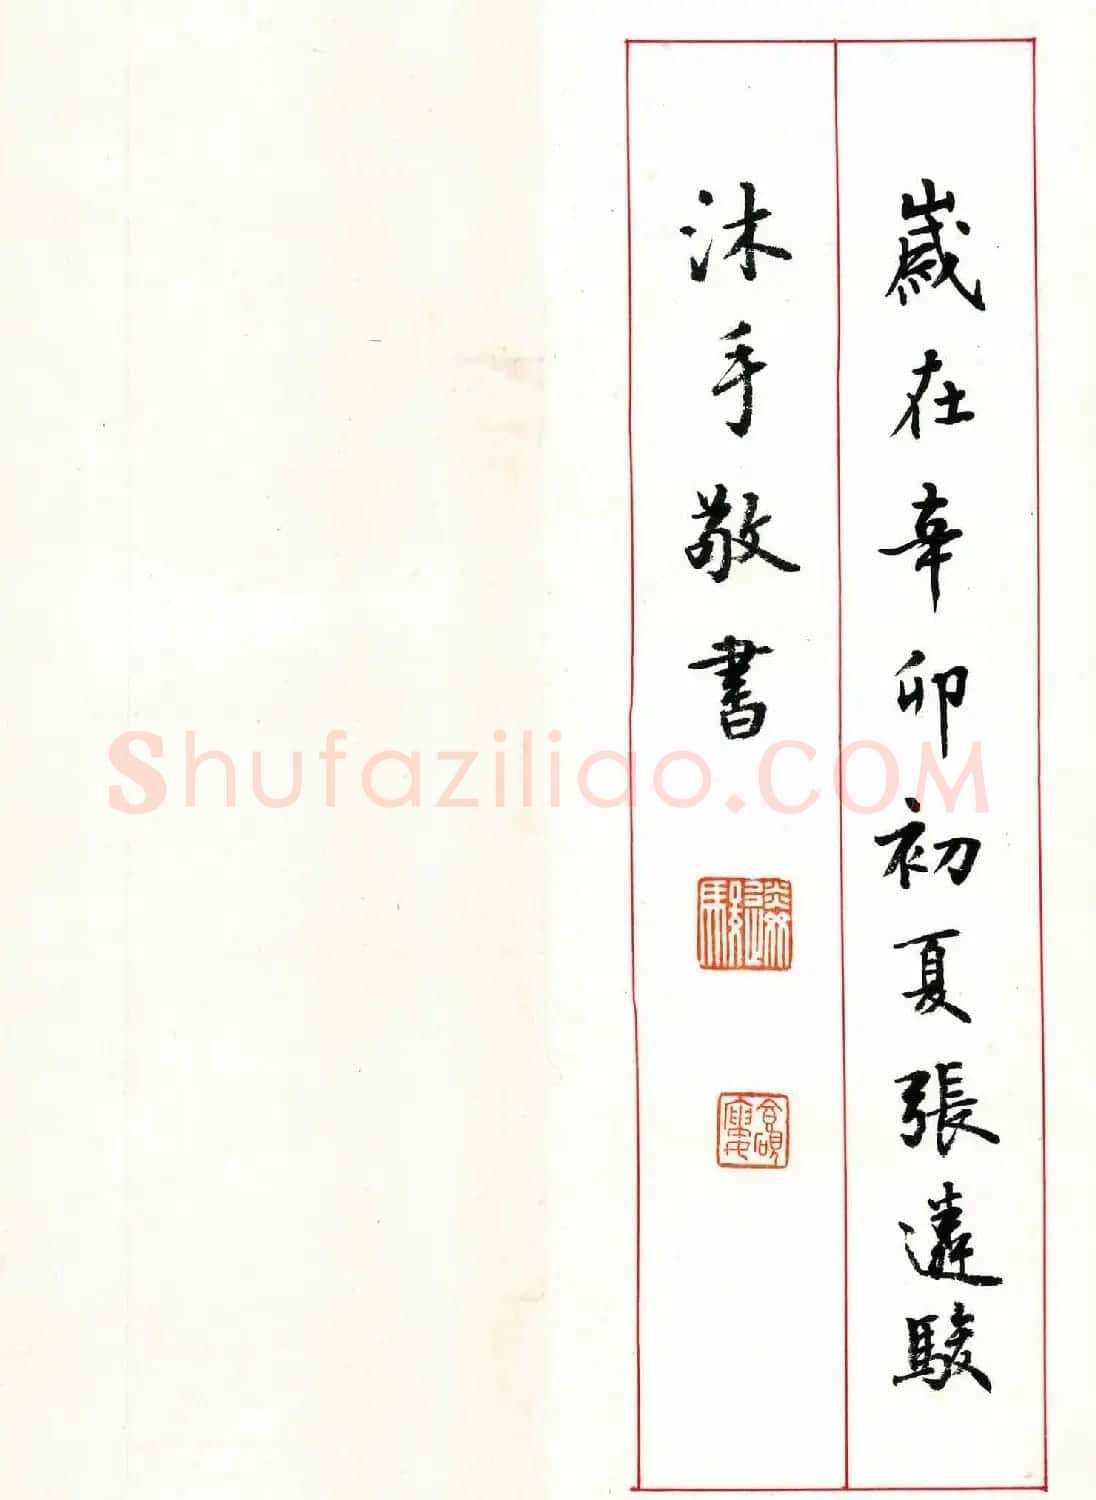 歲在辛卯初夏張遴駿
沐手敬書
Shufaziliao.COM